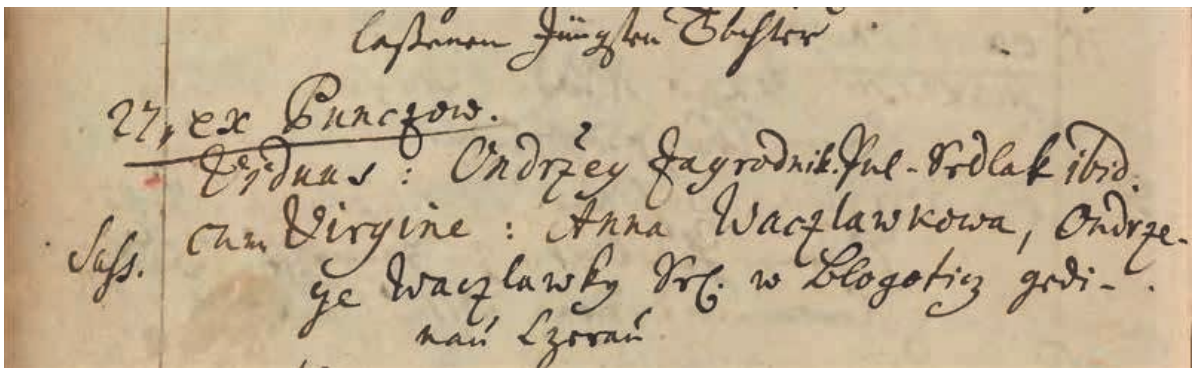 laßenen Jüngsten Tochter
27, ex Punczow.
Viduus : Ondrzey Zagrodnik. Pul-Sedlak ibid.
Suss. cum Virgine : Anna Waczlawkowa, Ondrze-
ye Waczlawky Sedl. w Blogoticz gedi-
nau Dzerau